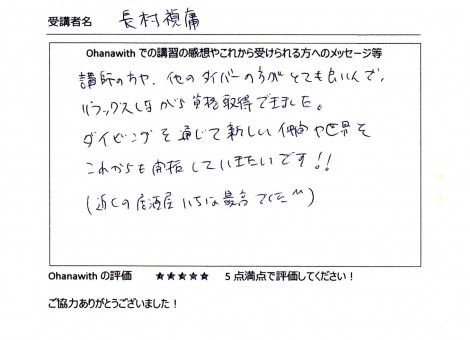 受講者名 長村禎庸
Ohanawith での講習の感想やこれから受けられる方へのメッセージ等
講師の方や、他のダイバーの方がとても良い人で、
リラックスしながら資格取得できました。
ダイビングを通じて新しい仲間や世界を
これからも開拓していきたいです!!
(近くの居酒屋 は最高でした ^^)
Ohanawith の評価 ★★★★★ 5 点満点で評価してください!
ご協力ありがとうございました!